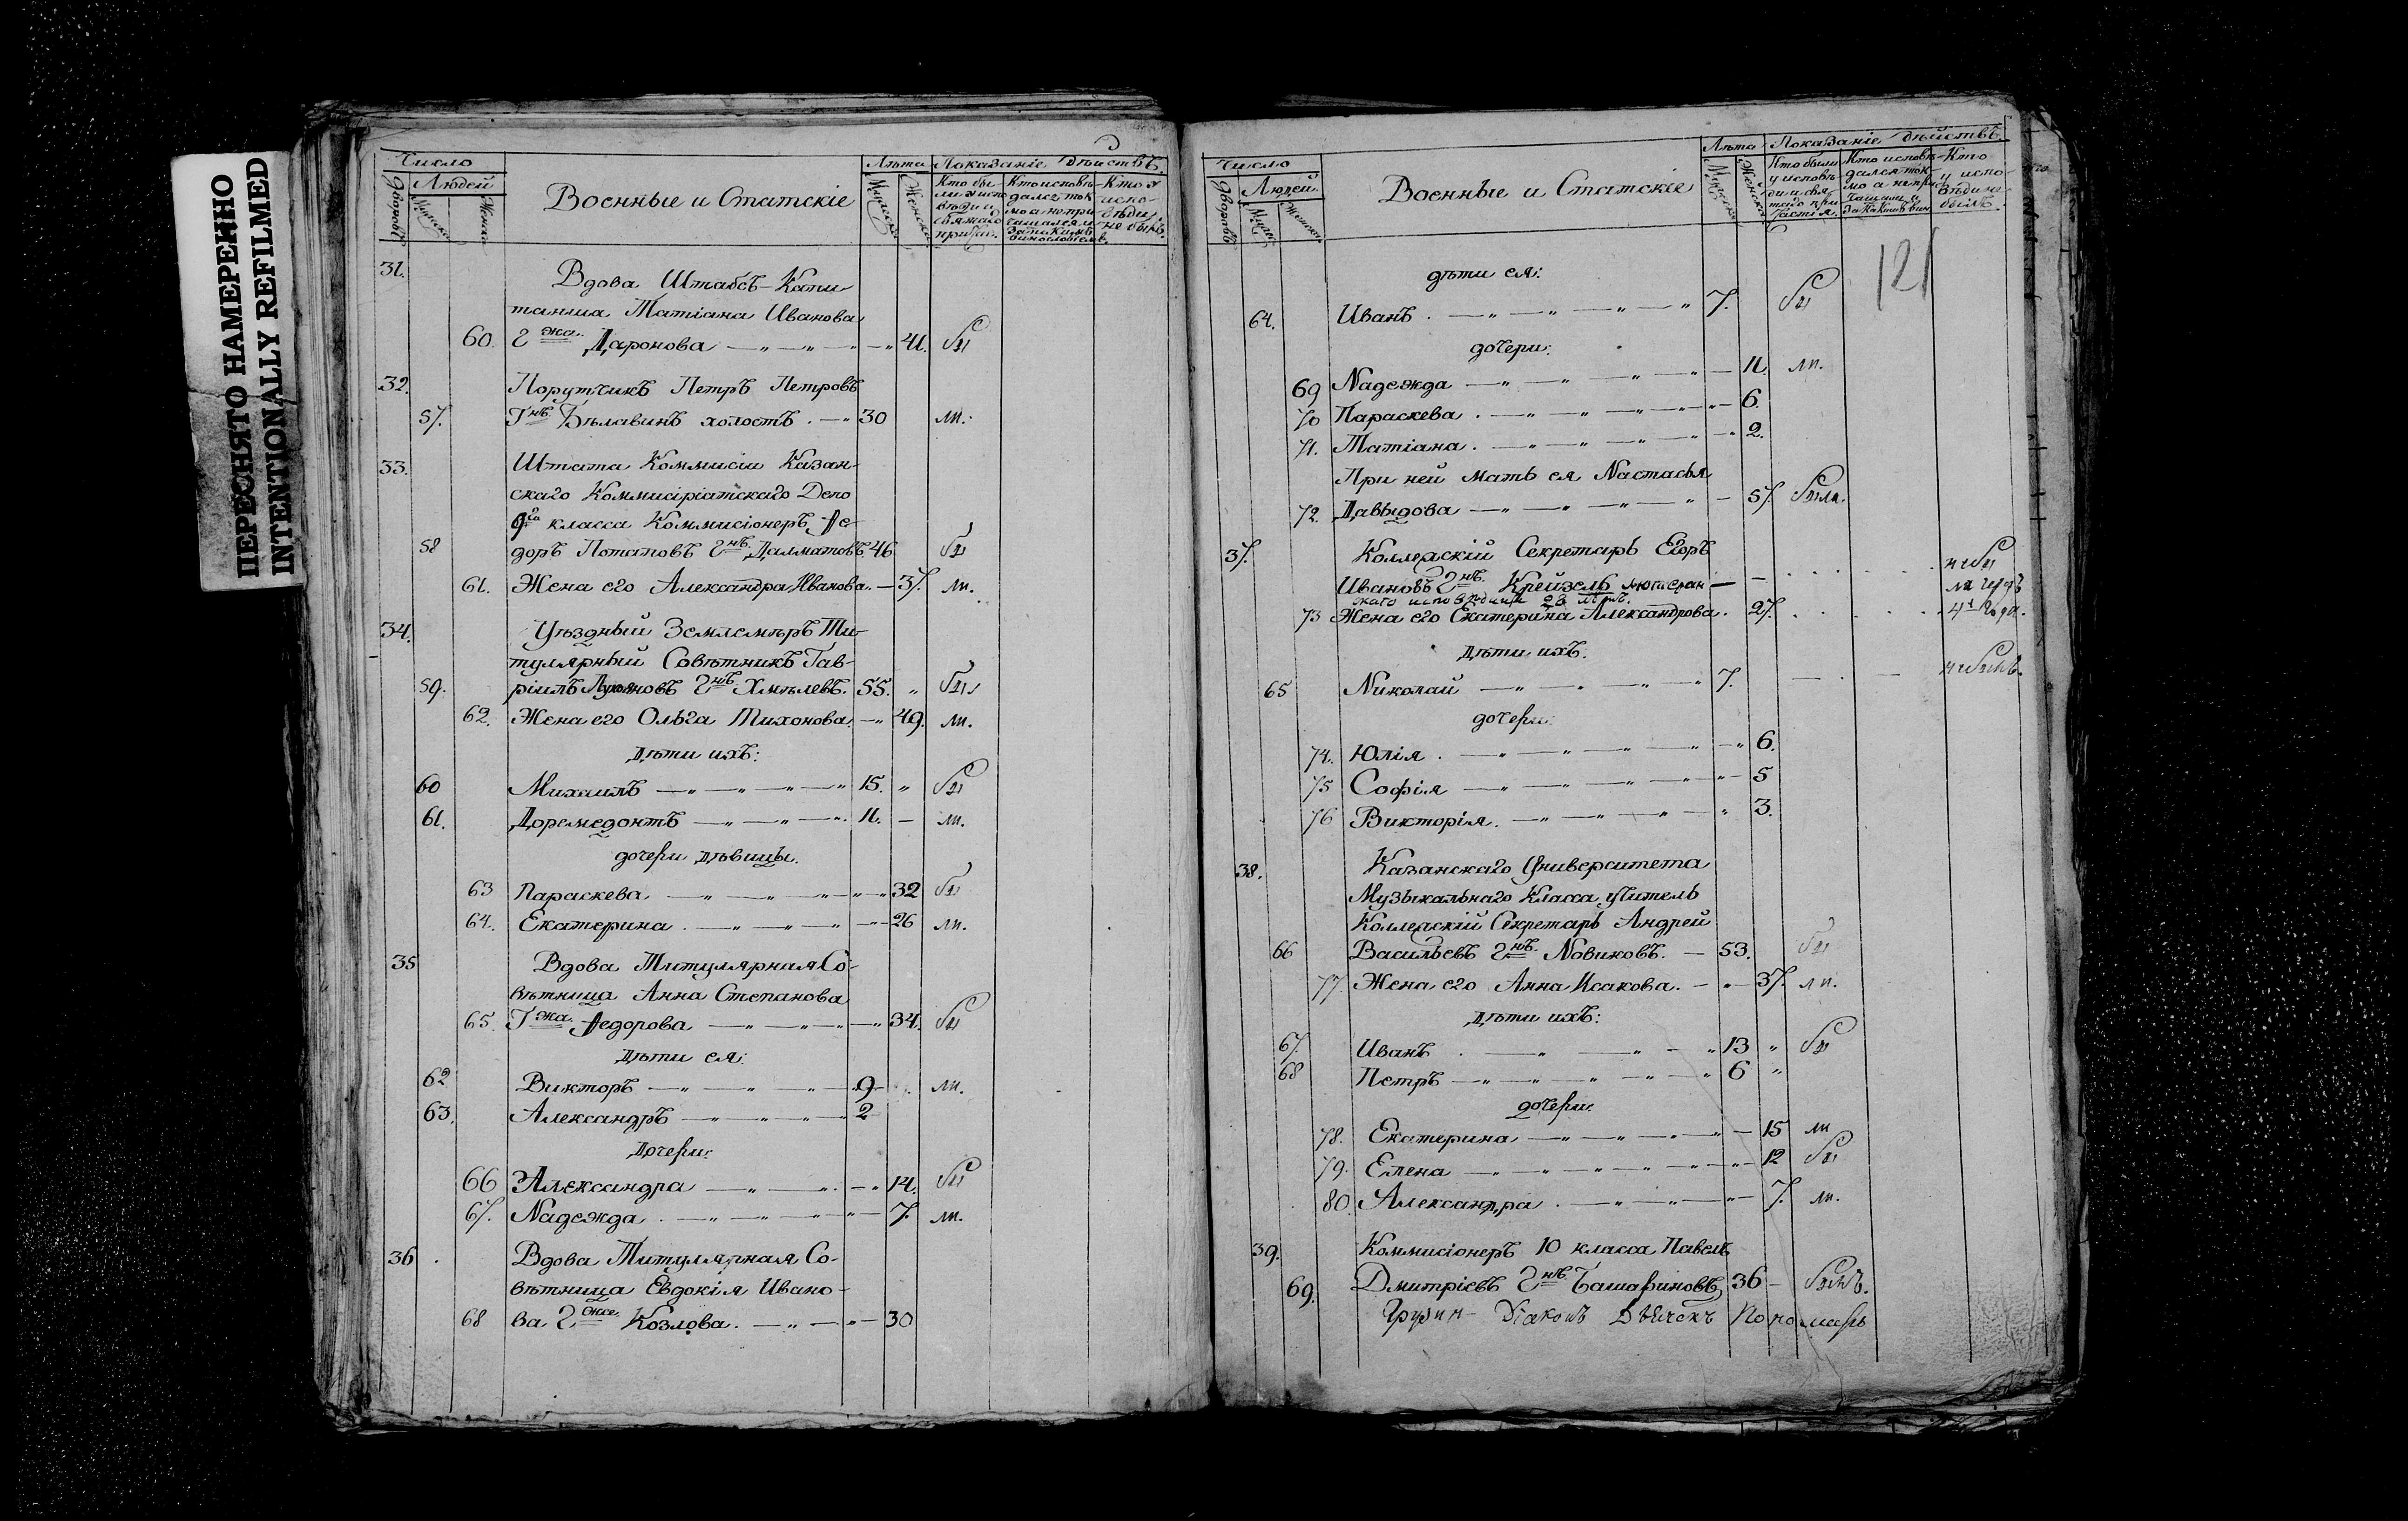 ПЕРЕСНЯТО НАМЕРЕННО
INTENTIONALLY REFILMED
Число
Людей
Дворовъ
Мужска
Женска
Военные и Статскіе
Лѣта
Мужска
Женска
Показаніе дѣйствъ.
31.
Вдова Штабсъ-Капи-
танша Татіана Иванова
60. Г жа. Даронова 41. бы
32. Порутчикъ Петръ Петровъ
57. Г нъ. Бѣлавинъ холостъ. 30 ли.
33. Штата Коммисіи Казан-
скаго Коммисіріатскаго Депо
9 го класса Коммисіонеръ Ѳе-
58 доръ Потаповъ Г нъ. Далматовъ 46 бы
61. Жена его Александра Иванова. 37. ли.
34. Уѣздный Землемѣръ Ти-
тулярный Совѣтникъ Гав-
59. ріилъ Г нъ. Хмѣлевъ. 55. бы
62. Жена его Ольга Тихонова 49. ли.
Дѣти ихъ:
60 Михаилъ 15. бы
61. Доремедонтъ 11. ли.
дочери дѣвицы.
63 Параскева 32 бы
64. Екатерина 26 ли.
35 Вдова Титулярная Со-
вѣтница Анна Степанова
65. Г жа. Ѳедорова 34. бы
Дѣти ея:
62 Викторъ 9 ли.
63. Александръ 2
Дочери:
66 Александра 14. бы
67. Надежда 7. ли.
36 Вдова Титулярная Со-
вѣтница Евдокія Ивано-
68 ва Г жа Козлова. 30
Число
Людей
Дворовъ
Военные и Статскіе
Лѣта
Мужска
Женска
Показаніе дѣйствъ.
Кто были
у исповѣ-
Кто исповѣ-
Кто
у испо-
121
дѣти ея:
64. Иванъ 7. бы
дочери:
69 Надежда 11. ли.
70 Параскева 6.
71. Татіана 2.
При ней мать ея Настасья
72. Давыдова 57. была.
37. Коллежскій Секретарь Егоръ
Ивановъ Г нъ. Крейзель лютеран-
скаго исповѣданія
73 Жена его Екатерина Александрова. 27.
Дѣти ихъ.
65 Николай 7. небылъ.
дочери:
74. Юлія 6.
75 Софія 5
76 Викторія. 3.
38. Казанскаго Университета
Музыкальнаго Класса учитель
Коллежскій Секретарь Андрей
66 Васильевъ Г нъ. Новиковъ. 53. бы
77. Жена его Анна Исакова. 37. ли.
Дѣти ихъ:
67. Иванъ 13 бы
68 Петръ 6
дочери.
78. Екатерина 15 ли
79. Елена 12 бы
80. Александра 7. ли.
39. Коммисіонеръ 10 класса Павелъ
69. Дмитріевъ Г нъ. Башариновъ 36 былъ.
Діаконъ Дьячекъ Пономарь